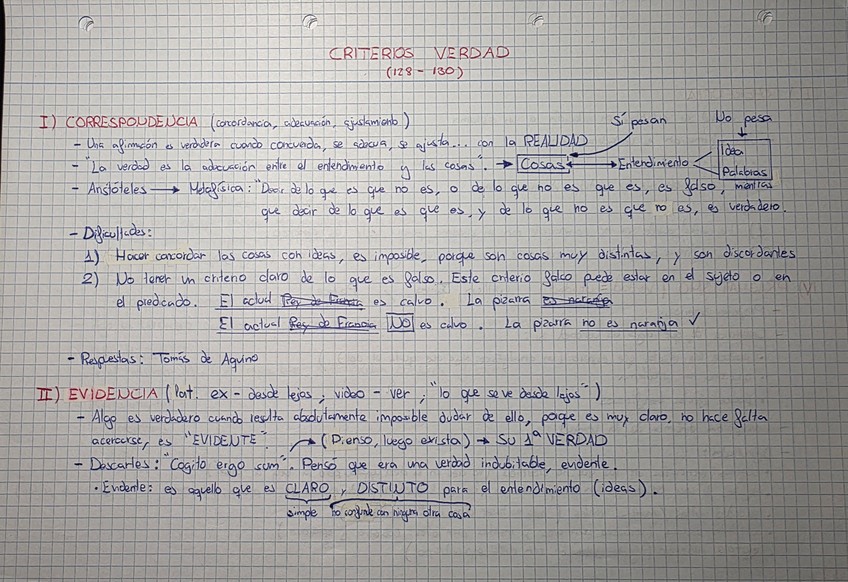 CRITERIOS VERDAD
(128 - 130)
I) CORRESPONDENCIA (concordancia, adecuación, ajustamiento)
Sí pesan
No pesa
- Una afirmación es verdadera cuando concuerda, se adecua, se ajusta... con la REALIDAD
- "La verdad es la adecuación entre el entendimiento y las cosas". → Cosas ↔ Entendimiento
Idea
Palabras
- Aristóteles → Metafísica: "Decir de lo que es que no es, o de lo que no es que es, es falso, mientras
que decir de lo que es que es, y de lo que no es que no es, es verdadero.
- Dificultades:
1) Hacer concordar las cosas con ideas, es imposible, porque son cosas muy distintas, y son discordantes
2) No tener un criterio claro de lo que es falso. Este criterio falso puede estar en el sujeto o en
el predicado. El actual Rey de Francia es calvo. La pizarra es naranja
El actual Rey de Francia NO es calvo. La pizarra no es naranja ✓
- Respuestas: Tomás de Aquino
II) EVIDENCIA (lat. ex - desde lejos, video - ver, "lo que se ve desde lejos")
- Algo es verdadero cuando resulta absolutamente imposible dudar de ello, porque es muy claro, no hace falta
acercarse, es "EVIDENTE". (Pienso, luego existo) → SU 1ª VERDAD
- Descartes: "Cogito ergo sum". Pensó que era una verdad indubitable, evidente.
· Evidente: es aquello que es CLARO y DISTINTO para el entendimiento (ideas).
simple no confunde con ninguna otra cosa